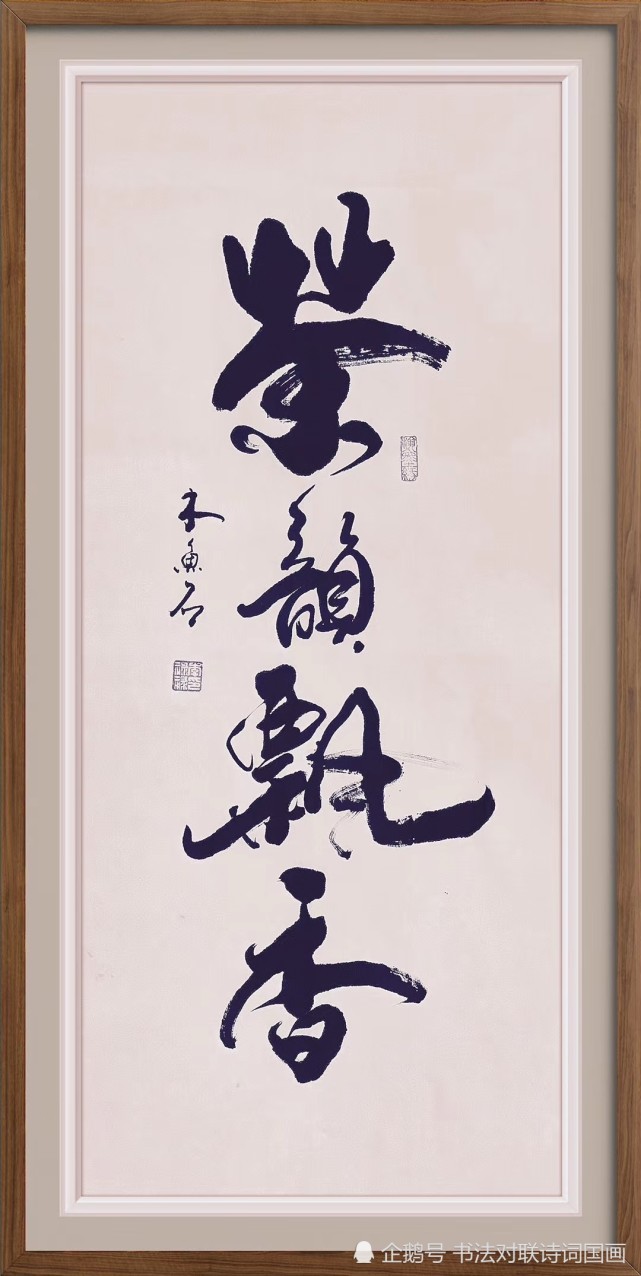 茶韻飄香
木魚石
企鹅号 书法对联诗词国画